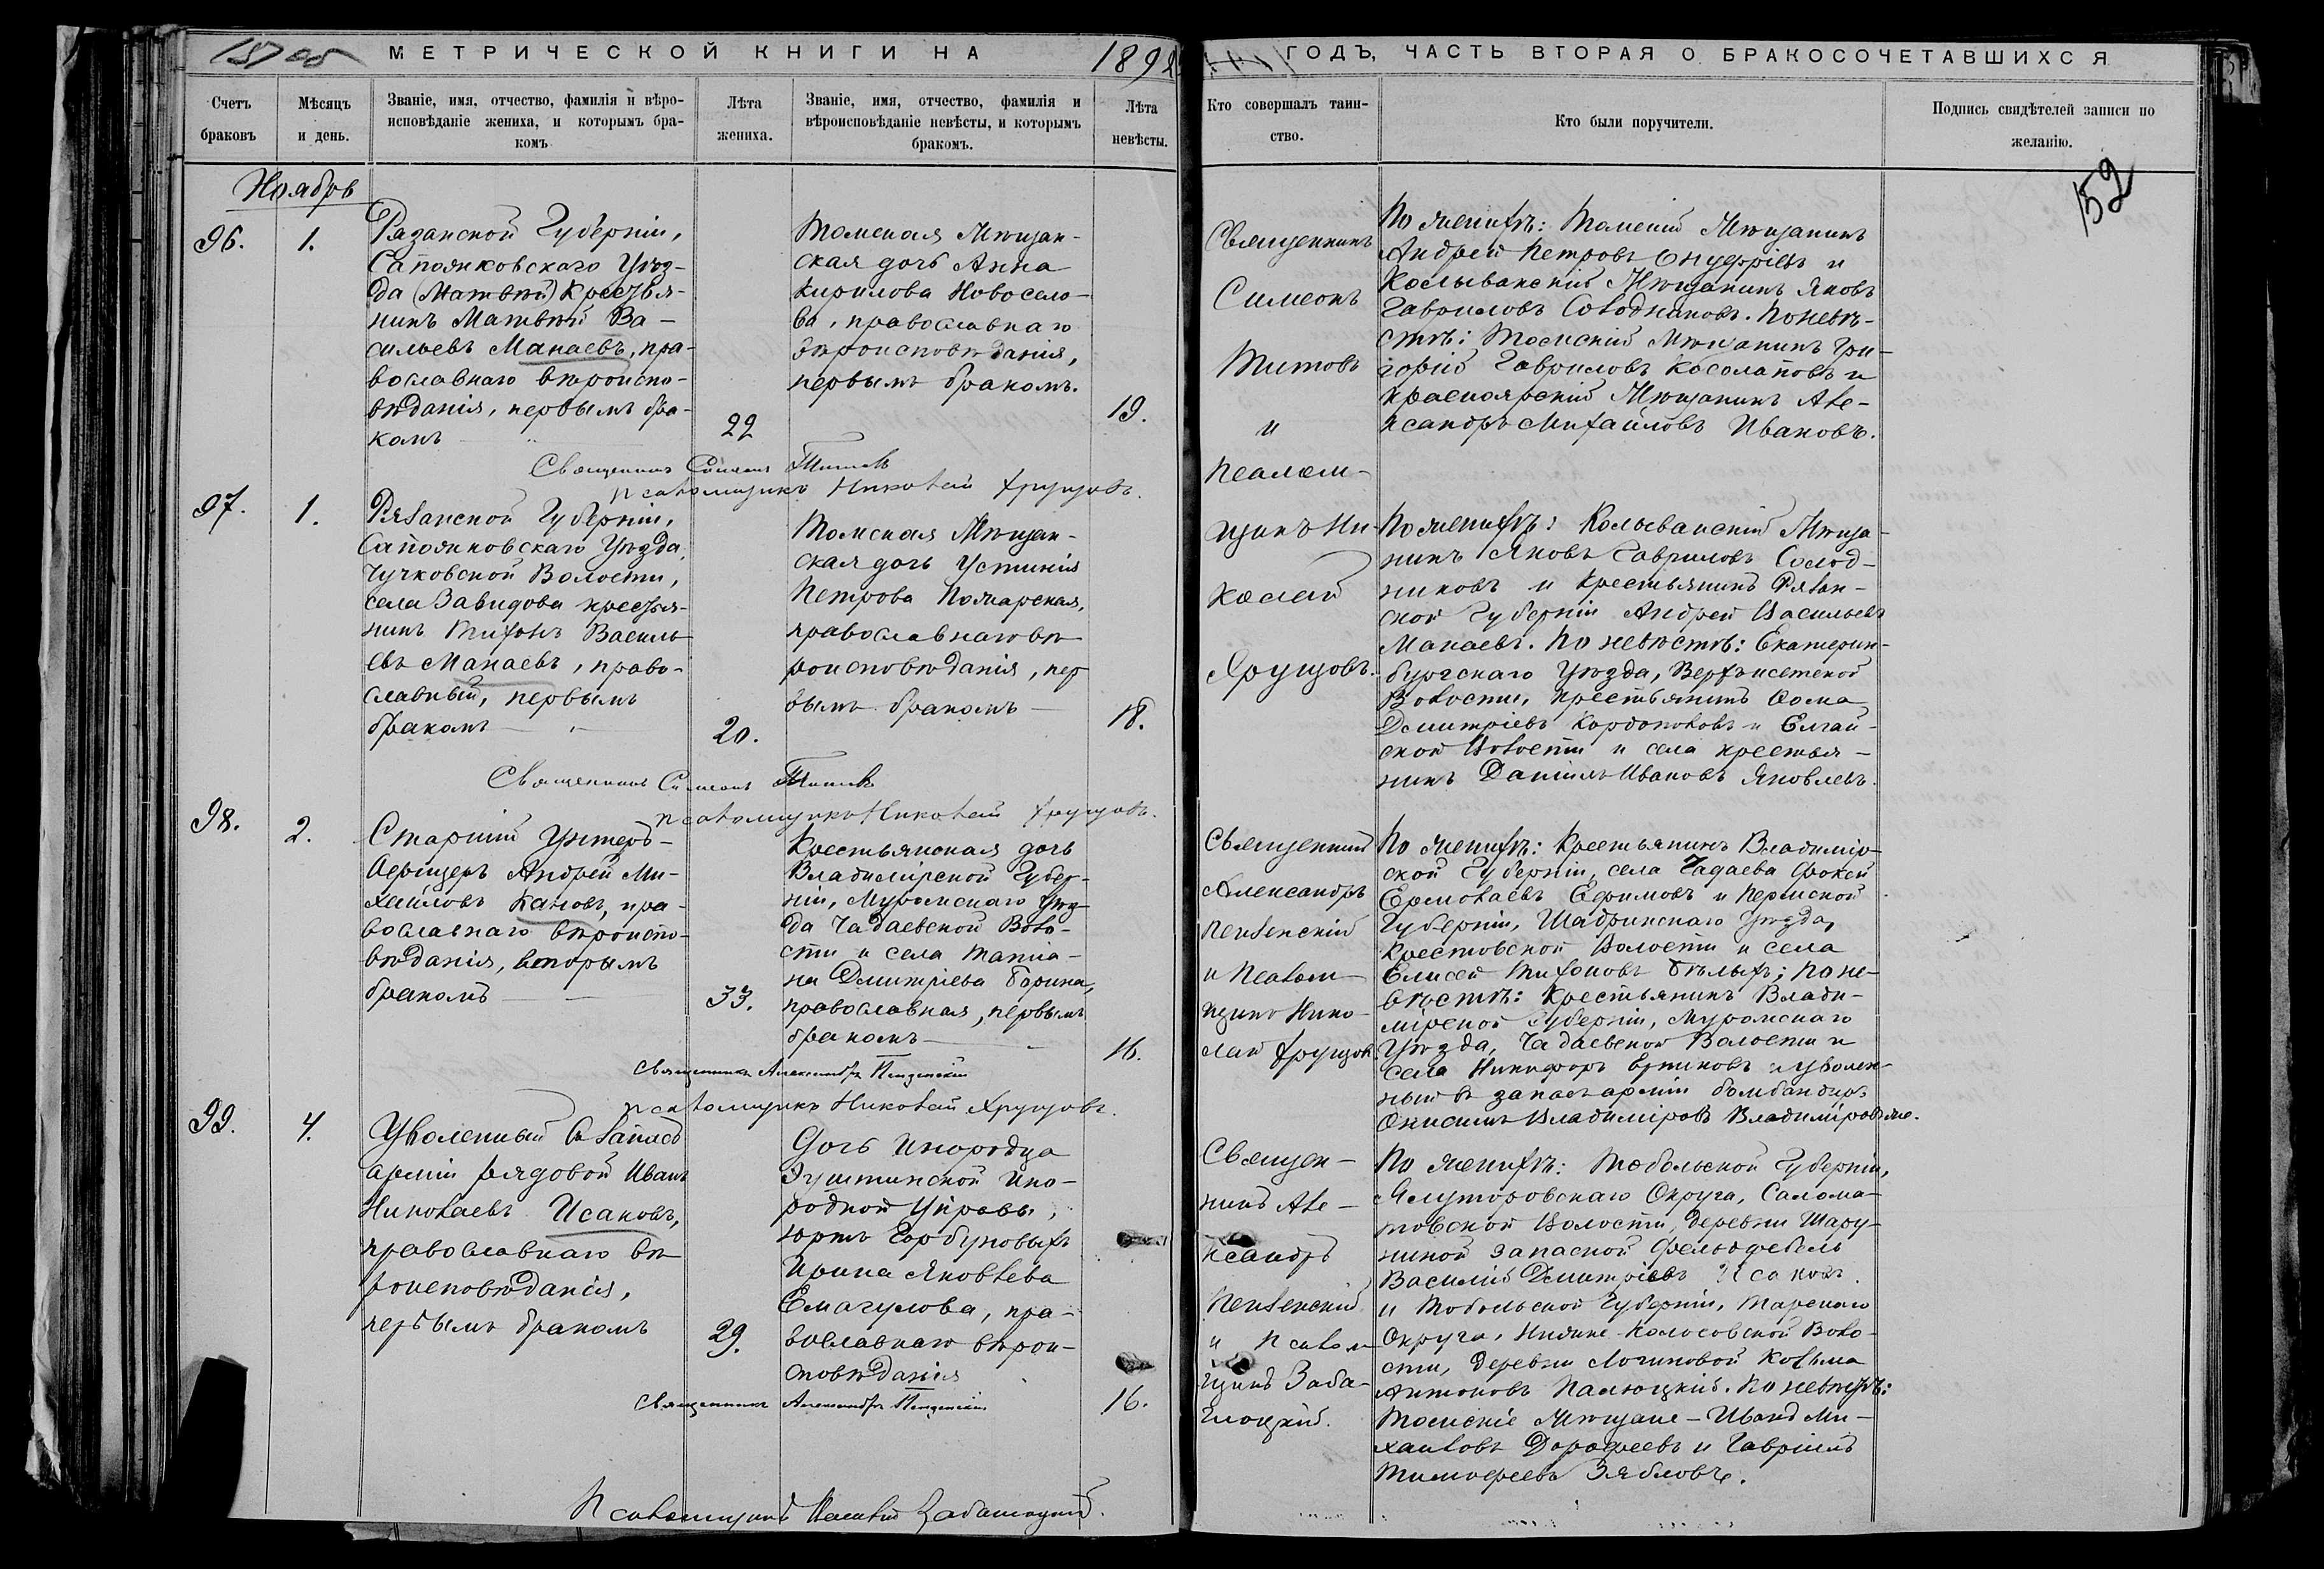 МЕТРИЧЕСКОЙ КНИГИ НА 1892
ГОДЪ, ЧАСТЬ ВТОРАЯ О БРАКОСОЧЕТАВШИХСЯ
Счетъ браковъ
Мѣсяцъ и день.
Званіе, имя, отчество, фамилія и вѣро-
исповѣданіе жениха, и которымъ бра-
комъ
Лѣта жениха.
Званіе, имя, отчество, фамилія и
вѣроисповѣданіе невѣсты, и которымъ
бракомъ.
Лѣта невѣсты.
Кто совершалъ таин-
ство.
Кто были поручители.
Подпись свидѣтелей записи по
желанію.
152
Ноябрь
96.
1.
Рязанской Губерніи,
Сапожковскаго Уѣз-
да (Матвѣй) Крестья-
нинъ Матвѣй Ва-
сильевъ Макаевъ, пра-
вославнаго вѣроиспо-
вѣданія, первымъ бра-
комъ
22
Томская Мѣщан-
ская дочь Анна
Кирилова Новосело-
ва, православнаго
вѣроисповѣданія,
первымъ бракомъ.
19.
Священникъ
Симеонъ
Титовъ
и
Псалом-
щикъ Ни-
колай
Хрущовъ.
По женихѣ: Томскій Мѣщанинъ
Андрей Петровъ Онуфріевъ и
Колыванскій Мѣщанинъ Яковъ
Гавриловъ Солодниковъ. По невѣ-
стѣ: Томскій Мѣщанинъ Гри-
горій Гавриловъ Косолаповъ и
Красноярскій Мѣщанинъ Але-
ксандръ Михайловъ Ивановъ.
Священникъ Симеонъ Титовъ
псаломщикъ Николай Хрущовъ.
97.
1.
Рязанской Губерніи,
Сапожковскаго Уѣзда,
Чучковской Волости,
села Завидова крестья-
нинъ Тихонъ Василь-
евъ Макаевъ, право-
славный, первымъ
бракомъ
20.
Томская Мѣщан-
ская дочь Устинія
Петрова Пожарская,
православнаго вѣ-
роисповѣданія, пер
вымъ бракомъ
18.
По женихѣ: Колыванскій Мѣща-
нинъ Яковъ Гавриловъ Солод-
никовъ и крестьянинъ Рязан-
ской Губерніи Андрей Васильевъ
Макаевъ. По невѣстѣ: Екатерин-
бургскаго Уѣзда, Верхъисетской
Волости, крестьянинъ Ѳома
Дмитріевъ и Елгай-
ской Волости и села крестья-
нинъ Даніилъ Ивановъ Яковлевъ.
Священникъ Симеонъ Титовъ
псаломщикъ Николай Хрущовъ.
98.
2.
Старшій Унтеръ-
Офицеръ Андрей Ми-
хайловъ Катовъ, пра-
вославнаго вѣроиспо-
вѣданія, вторымъ
бракомъ
33.
Крестьянская дочь
Владимірской Губер-
ніи, Муромскаго Уѣз-
да Чадаевской Воло-
сти и села Татіа-
на Дмитріева Борина,
православная, первымъ
бракомъ
16.
Священникъ
Александръ
Пензенскій
и Псалом-
щикъ Нико-
лай Хрущовъ
По женихѣ: Крестьянинъ Владимір-
ской Губерніи, села Чадаева Фокей
Ермолаевъ Ефимовъ и Пермской
Губерніи, Шадринскаго Уѣзда,
Крестовской Волости и села
Елисей Тихоновъ Бѣлыхъ; По не-
вѣстѣ: Крестьянинъ Влади-
мірской Губерніи, Муромскаго
Уѣзда, Чадаевской Волости и
села Никифоръ и уволен-
ный въ запасъ арміи бомбандиръ
Онисимъ Владиміровъ
Священникъ Александръ Пензенскій
псаломщикъ Николай Хрущовъ.
99.
4.
Уволенный въ запасъ
арміи рядовой Иванъ
Николаевъ Исаковъ,
православнаго вѣ
роисповѣданія,
первымъ бракомъ
29.
Дочь Инородца
Эуштинской Ино-
родной Управы,
юртъ Горбуновыхъ
Ирина Яковлева
Емагулова, пра-
вославнаго вѣрои-
сповѣданія
16.
Священ-
никъ Але-
ксандръ
Пензенскій
и Псалом
щикъ Заба-
По женихѣ: Тобольской Губерніи,
Ялуторовскаго Округа, Салома-
товской Волости, деревни Шару-
ниной запасной фельдфебель
Василій Дмитріевъ Исаковъ
и Тобольской Губерніи, Тарскаго
Округа, Нижне-Колосовской Воло-
сти, деревни Логиновой Козьма
Антоновъ По невѣстѣ:
Томскіе Мѣщане - Иванъ Ми-
хаиловъ Дорофеевъ и Гавріилъ
Тимофеевъ Зябловъ.
Священникъ Александръ Пензенскій
Псаломщикъ